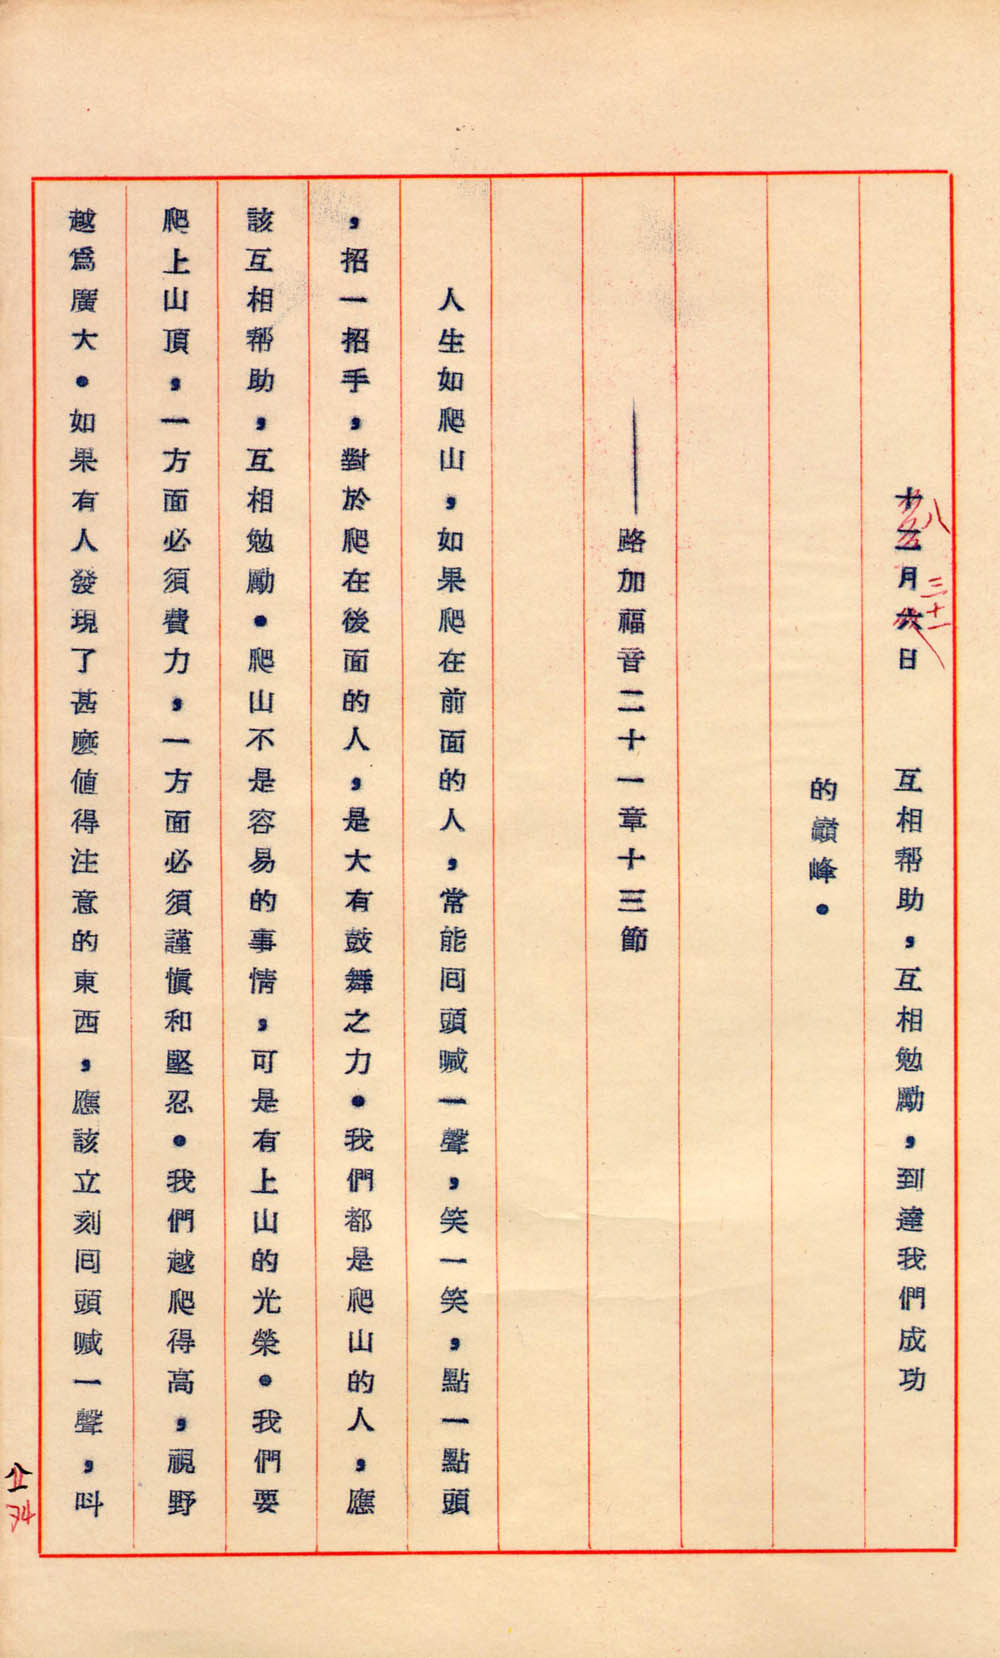 十二月六日　互相帮助，互相勉勵，到達我們成功
八
三十一
的巔峰．
——路加福音二十一章十三節
人生如爬山，如果爬在前面的人，常能囘頭喊一聲，笑一笑，點一點頭
，招一招手，對於爬在後面的人，是大有鼓舞之力．我們都是爬山的人，應
該互相帮助，互相勉勵．爬山不是容易的事情，可是有上山的光榮．我們要
爬上山頂，一方面必須費力，一方面必須謹愼和堅忍．我們越爬得高，視野
越爲廣大．如果有人發現了甚麽値得注意的東西，應該立刻囘頭喊一聲，叫